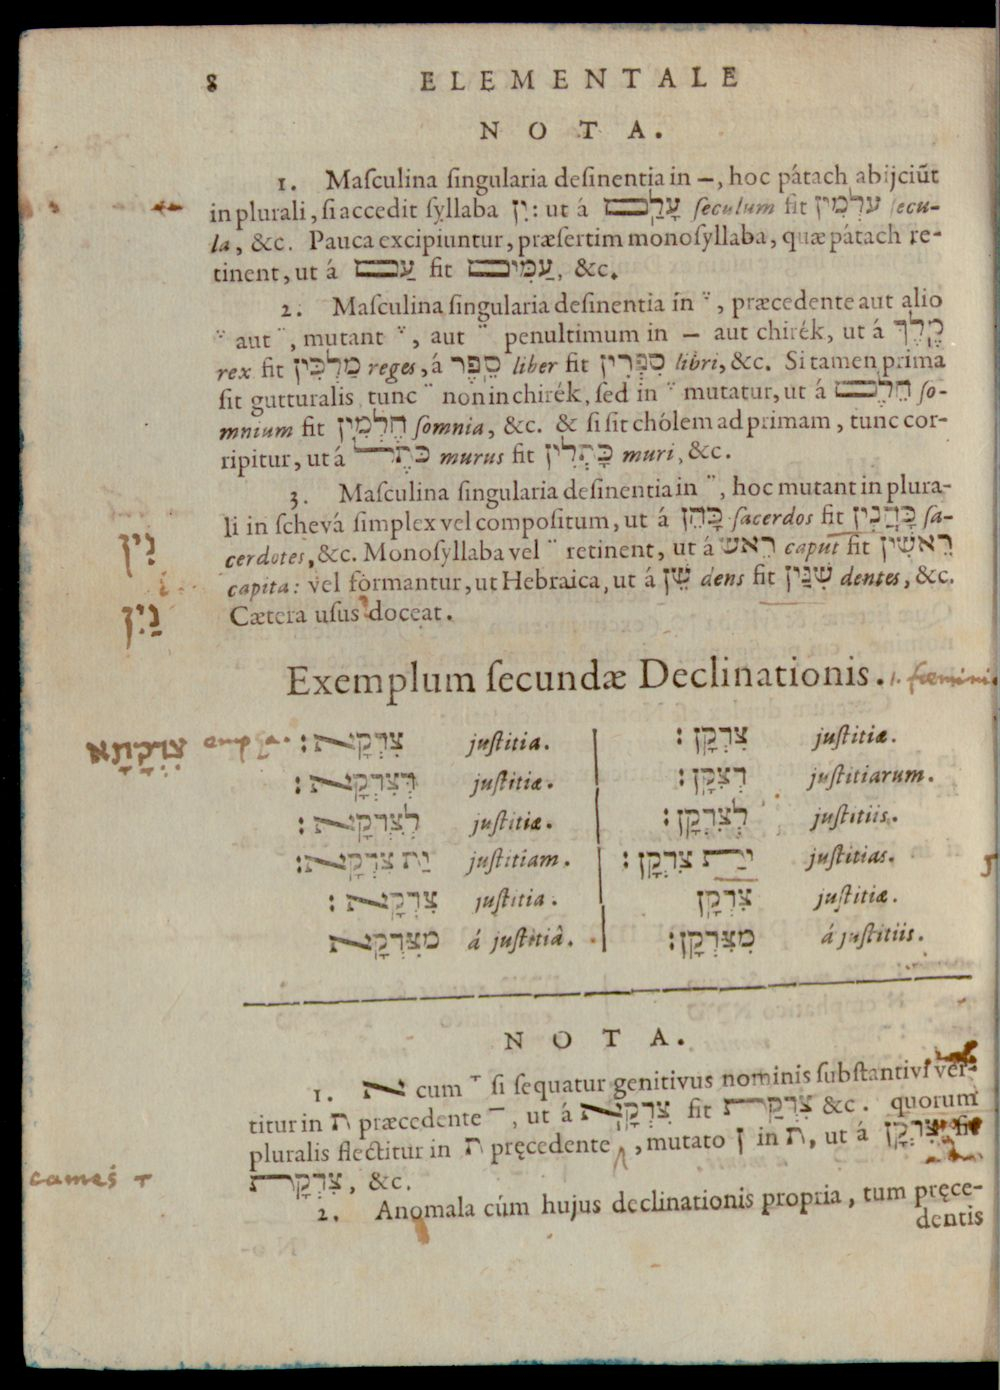 8 ELEMENTALE
NOTA.
1. Masculina singularia desinentia in –, hoc pátach abijciũt
in plurali, si accedit syllaba יִן: ut á עָלַם seculum fit עלְמִין secu-
la, &c. Pauca excipiuntur, præsertim monosyllaba, quæ pátach re-
tinent, ut á עַם fit עַמִּים, &c.
2. Masculina singularia desinentia in ֶ, præcedente aut alio
ֶ aut ֵ, mutant ֶ, aut ֵ penultimum in – aut chirék, ut á מֶלֶךְ
rex fit מַלְכִּין reges, á סֵפֶר liber fit סִפְרִין libri, &c. Si tamen prima
sit gutturalis tunc ֵ non in chirék, sed in ֶ mutatur, ut á חֵלֶם so-
mnium fit חֶלְמִין somnia, &c. & si sit chólem ad primam, tunc cor-
ripitur, ut á כֹּתֶל murus fit כָּתְלִין muri, &c.
3. Masculina singularia desinentia in ֵ, hoc mutant in plura-
li in schevá simplex vel compositum, ut á כָּהֵן sacerdos fit כָּהֲנִין sa-
cerdotes, &c. Monosyllaba vel ֵ retinent, ut á רֵאשׁ caput fit רֵאשִׁין
capita: vel formantur, ut Hebraica, ut á שֵׁן dens fit שִׁנַּיִן dentes, &c.
Cætera usus doceat.
נִין
נַיִן
Exemplum secundæ Declinationis. 1. fœmini
צִדְקָתָא empha. צִדְקָא: justitia. צִדְקָן: justitiæ.
דְּצִדְקָא: justitiæ. דְצִדְקָן: justitiarum.
לְצִדְקָא: justitiæ. לְצִדְקָן: justitiis.
יַת צִדְקָא: justitiam. יַת צִדְקָן: justitias.
צִדְקָא: justitia. צִדְקָן justitiæ.
מִצִּדְקָא á justitiâ. מִצִּדְקָן: á justitiis.
NOTA.
1. א cum ָ si sequatur genitivus nominis substantivi ver-
titur in ת præcedente ַ, ut á צִדְקָא fit צִדְקַת &c. quorum
pluralis flectitur in ת pręcedente , mutato ן in ת, ut á צִדְקָן fit
צִדְקָת, &c.
cames ָ
2. Anomala cúm hujus declinationis propria, tum pręce-
dentis